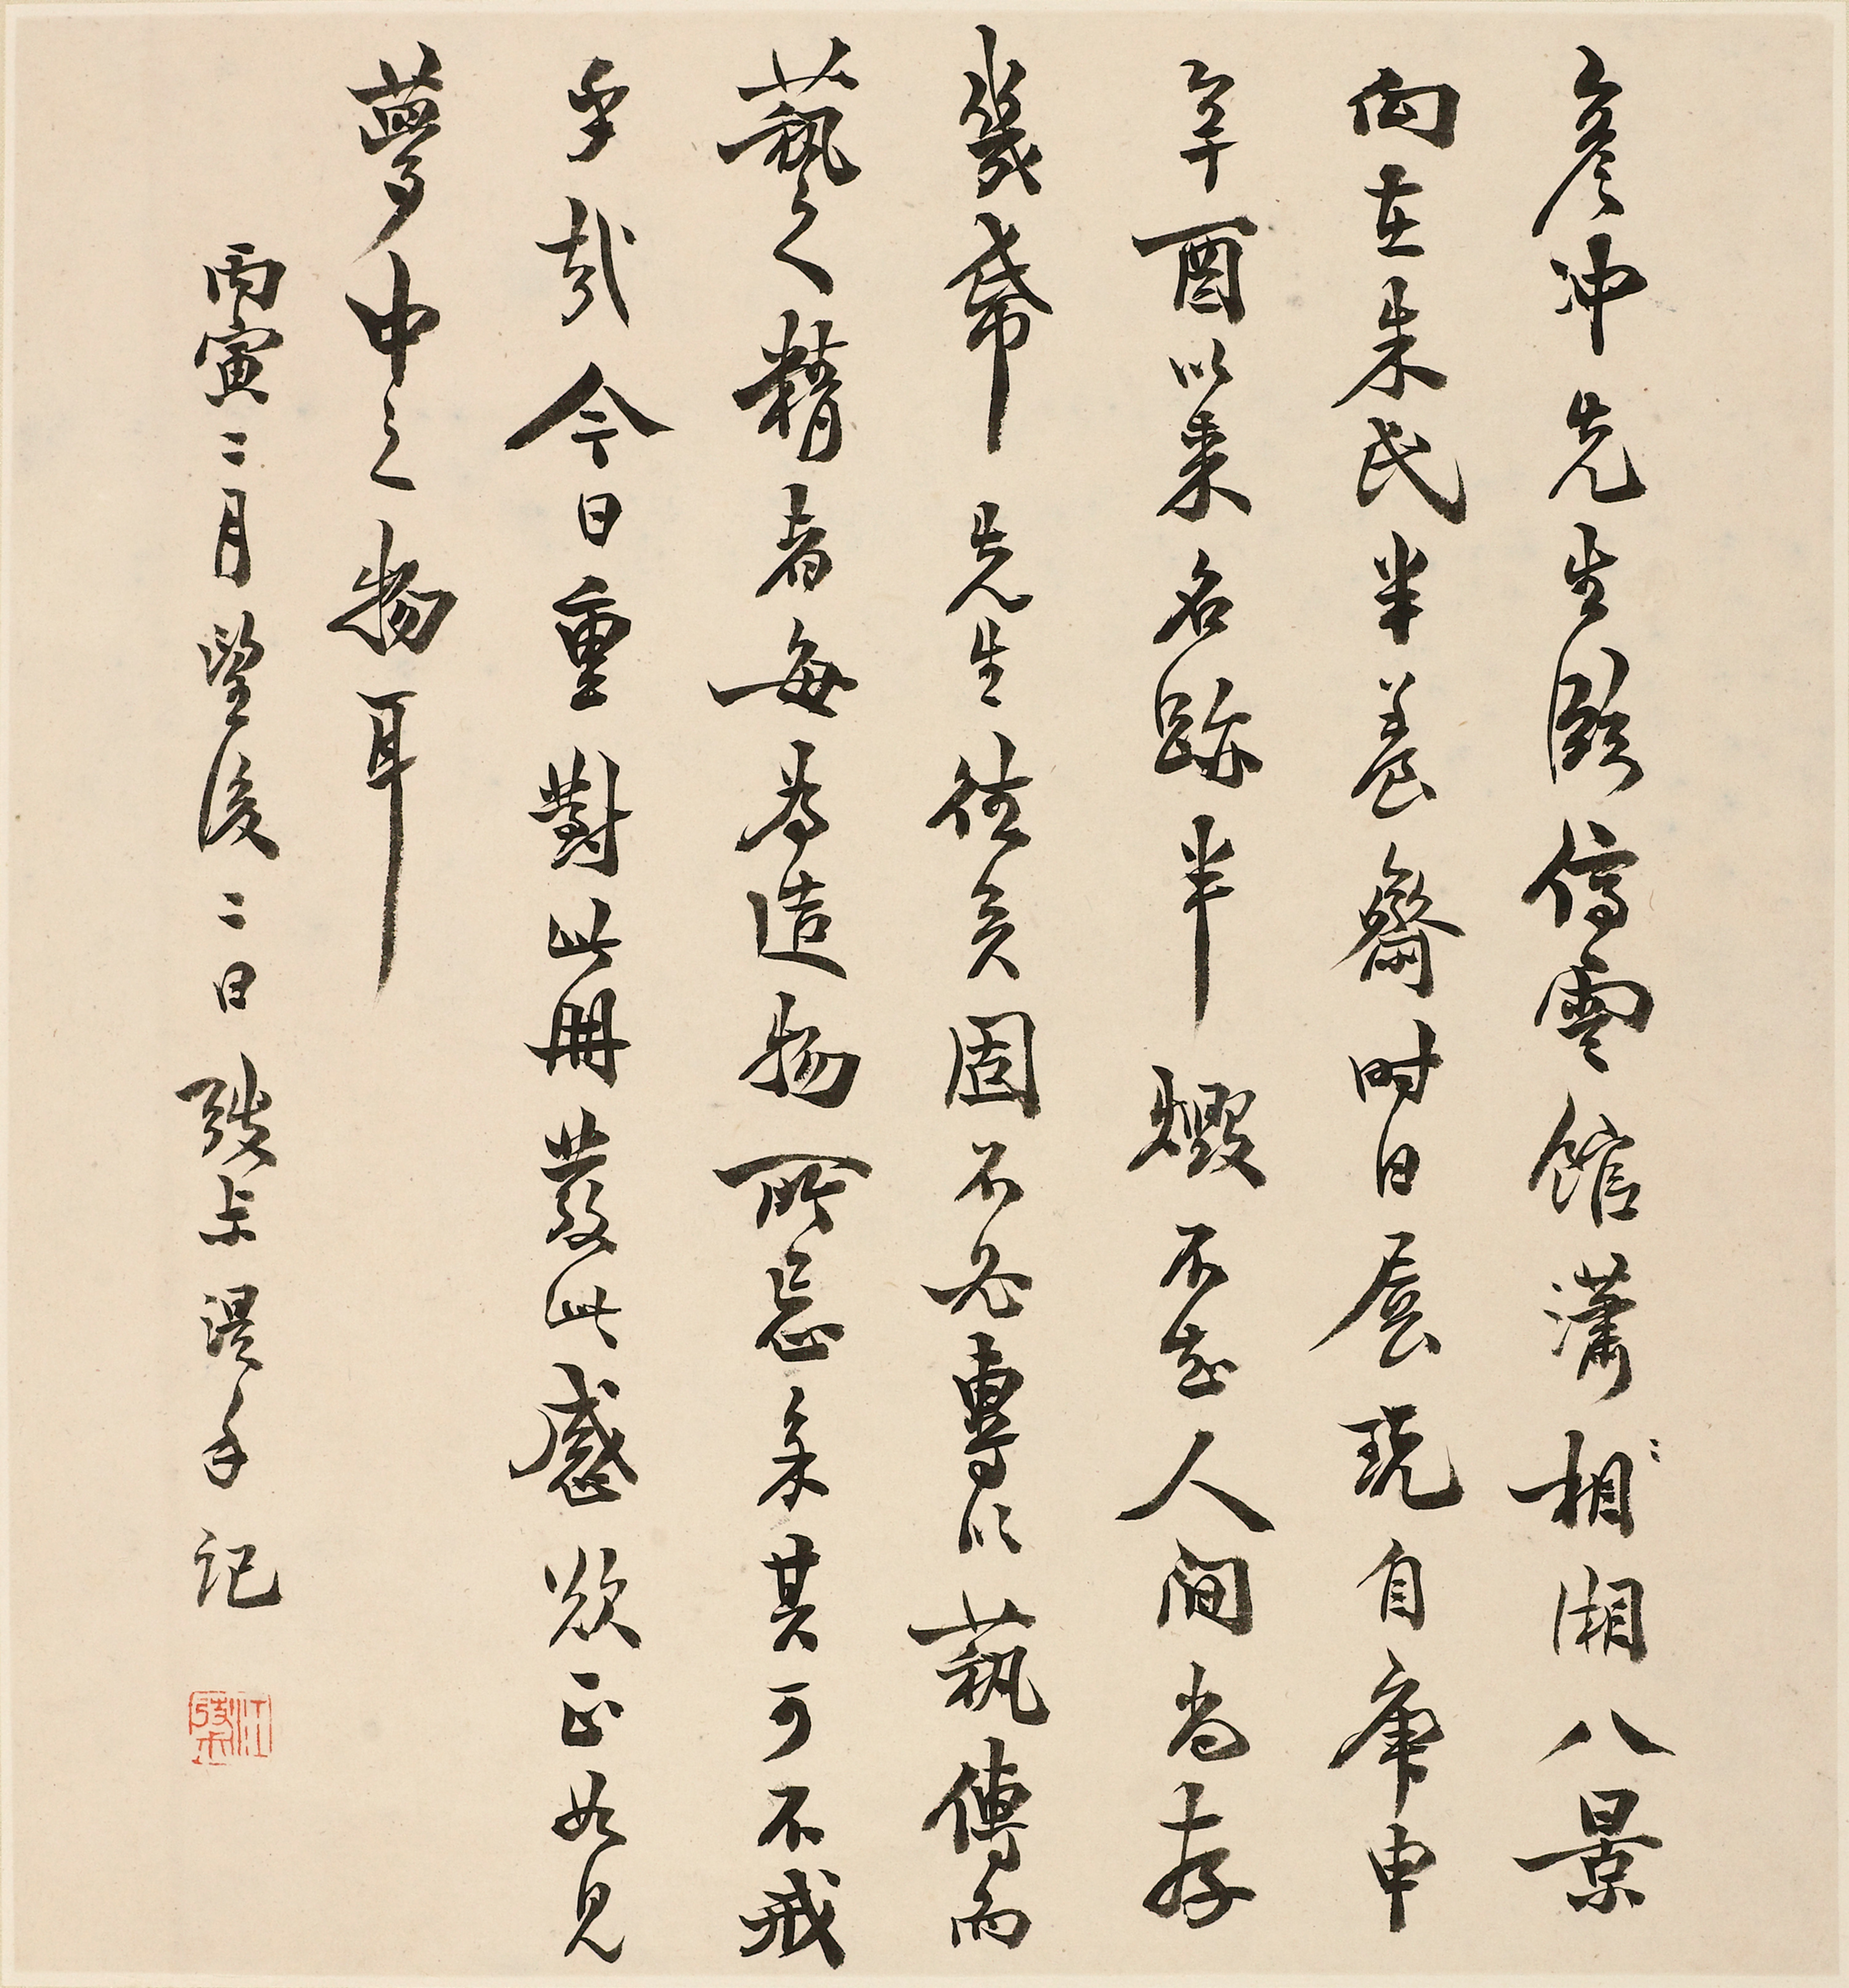 彥冲先生臨停雲館瀟相湘八景
向在朱氏半養齋時日展玩自庚申
辛酉以來名跡半燬不知人間尚存
幾希 先生往矣固不必專以藝傳而
藝之精者每為造物所忌其可不戒
乎哉今日重對此冊發此感歎正如見
夢中之物耳
丙寅二月望後二日弢叔湜手記
江弢叔